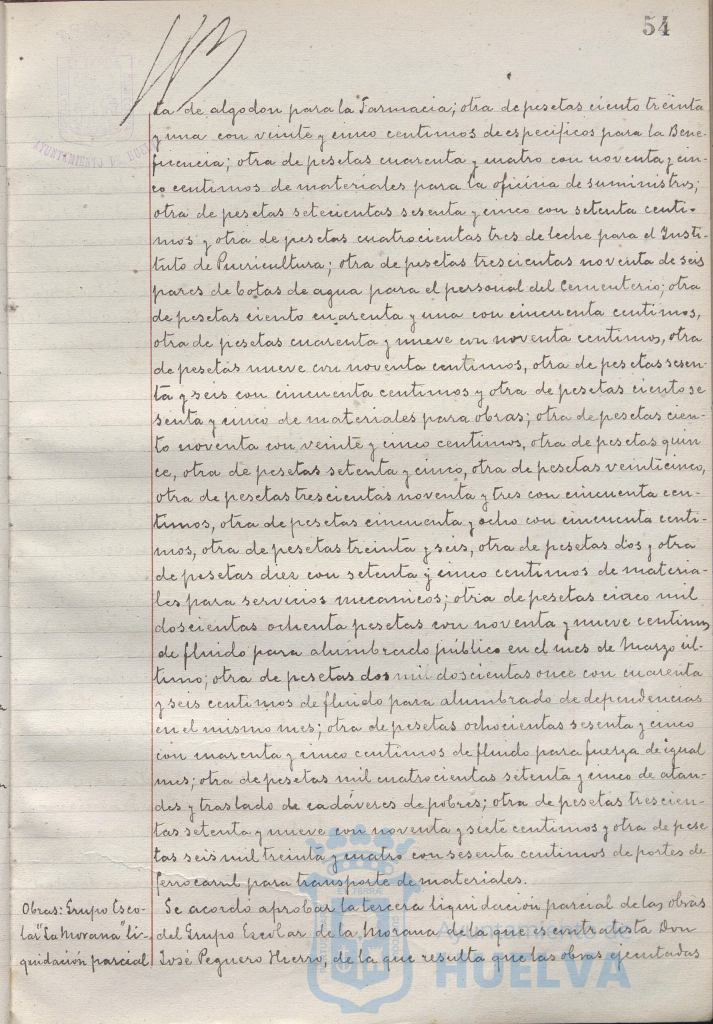 54
AYUNTAMIENTO DE HUELVA
ta de algodon para la Farmacia; otra de pesetas ciento treinta
y una con veinte y cinco centimos de especificos para la Bene-
ficencia; otra de pesetas cuarenta y cuatro con noventa y cin-
co centimos de materiales para la oficina de suministros;
otra de pesetas setecientas sesenta y cinco con setenta centi-
mos y otra de pesetas cuatrocientas tres de leche para el Insti-
tuto de Puericultura; otra de pesetas trescientas noventa de seis
pares de botas de agua para el personal del Cementerio; otra
de pesetas ciento cuarenta y una con cincuenta centimos,
otra de pesetas cuarenta y nueve con noventa centimos, otra
de pesetas nueve con noventa centimos, otra de pesetas sesen-
ta y seis con cincuenta centimos y otra de pesetas ciento se
senta y cinco de materiales para obras; otra de pesetas cien-
to noventa con veinte y cinco centimos, otra de pesetas quin
ce, otra de pesetas setenta y cinco, otra de pesetas veinticinco,
otra de pesetas trescientas noventa y tres con cincuenta cen-
timos, otra de pesetas cincuenta y ocho con cincuenta centi-
mos, otra de pesetas treinta y seis, otra de pesetas dos y otra
de pesetas diez con setenta y cinco centimos de materia-
les para servicios mecanicos; otra de pesetas cinco mil
doscientas ochenta pesetas con noventa y nueve centimos
de fluido para alumbrado público en el mes de Marzo úl-
timo; otra de pesetas dos mil doscientas once con cuarenta
y seis centimos de fluido para alumbrado de dependencias
en el mismo mes; otra de pesetas ochocientas sesenta y cinco
con cuarenta y cinco centimos de fluido para fuerza de igual
mes; otra de pesetas mil cuatrocientas setenta y cinco de ataú-
des y traslado de cadáveres de pobres; otra de pesetas trescien-
tas setenta y nueve con noventa y siete centimos y otra de pese
tas seis mil treinta y cuatro con sesenta centimos de portes de
ferrocarril para transporte de materiales.
Obras: Grupo Esco-
lar "La Morana" li-
quidación parcial
Se acordó aprobar la tercera liquidación parcial de las obras
del Grupo Escolar de la Morana de la que es contratista Don
José Peguero Hierro, de la que resulta que las obras ejecutadas
Ayuntamiento de
HUELVA